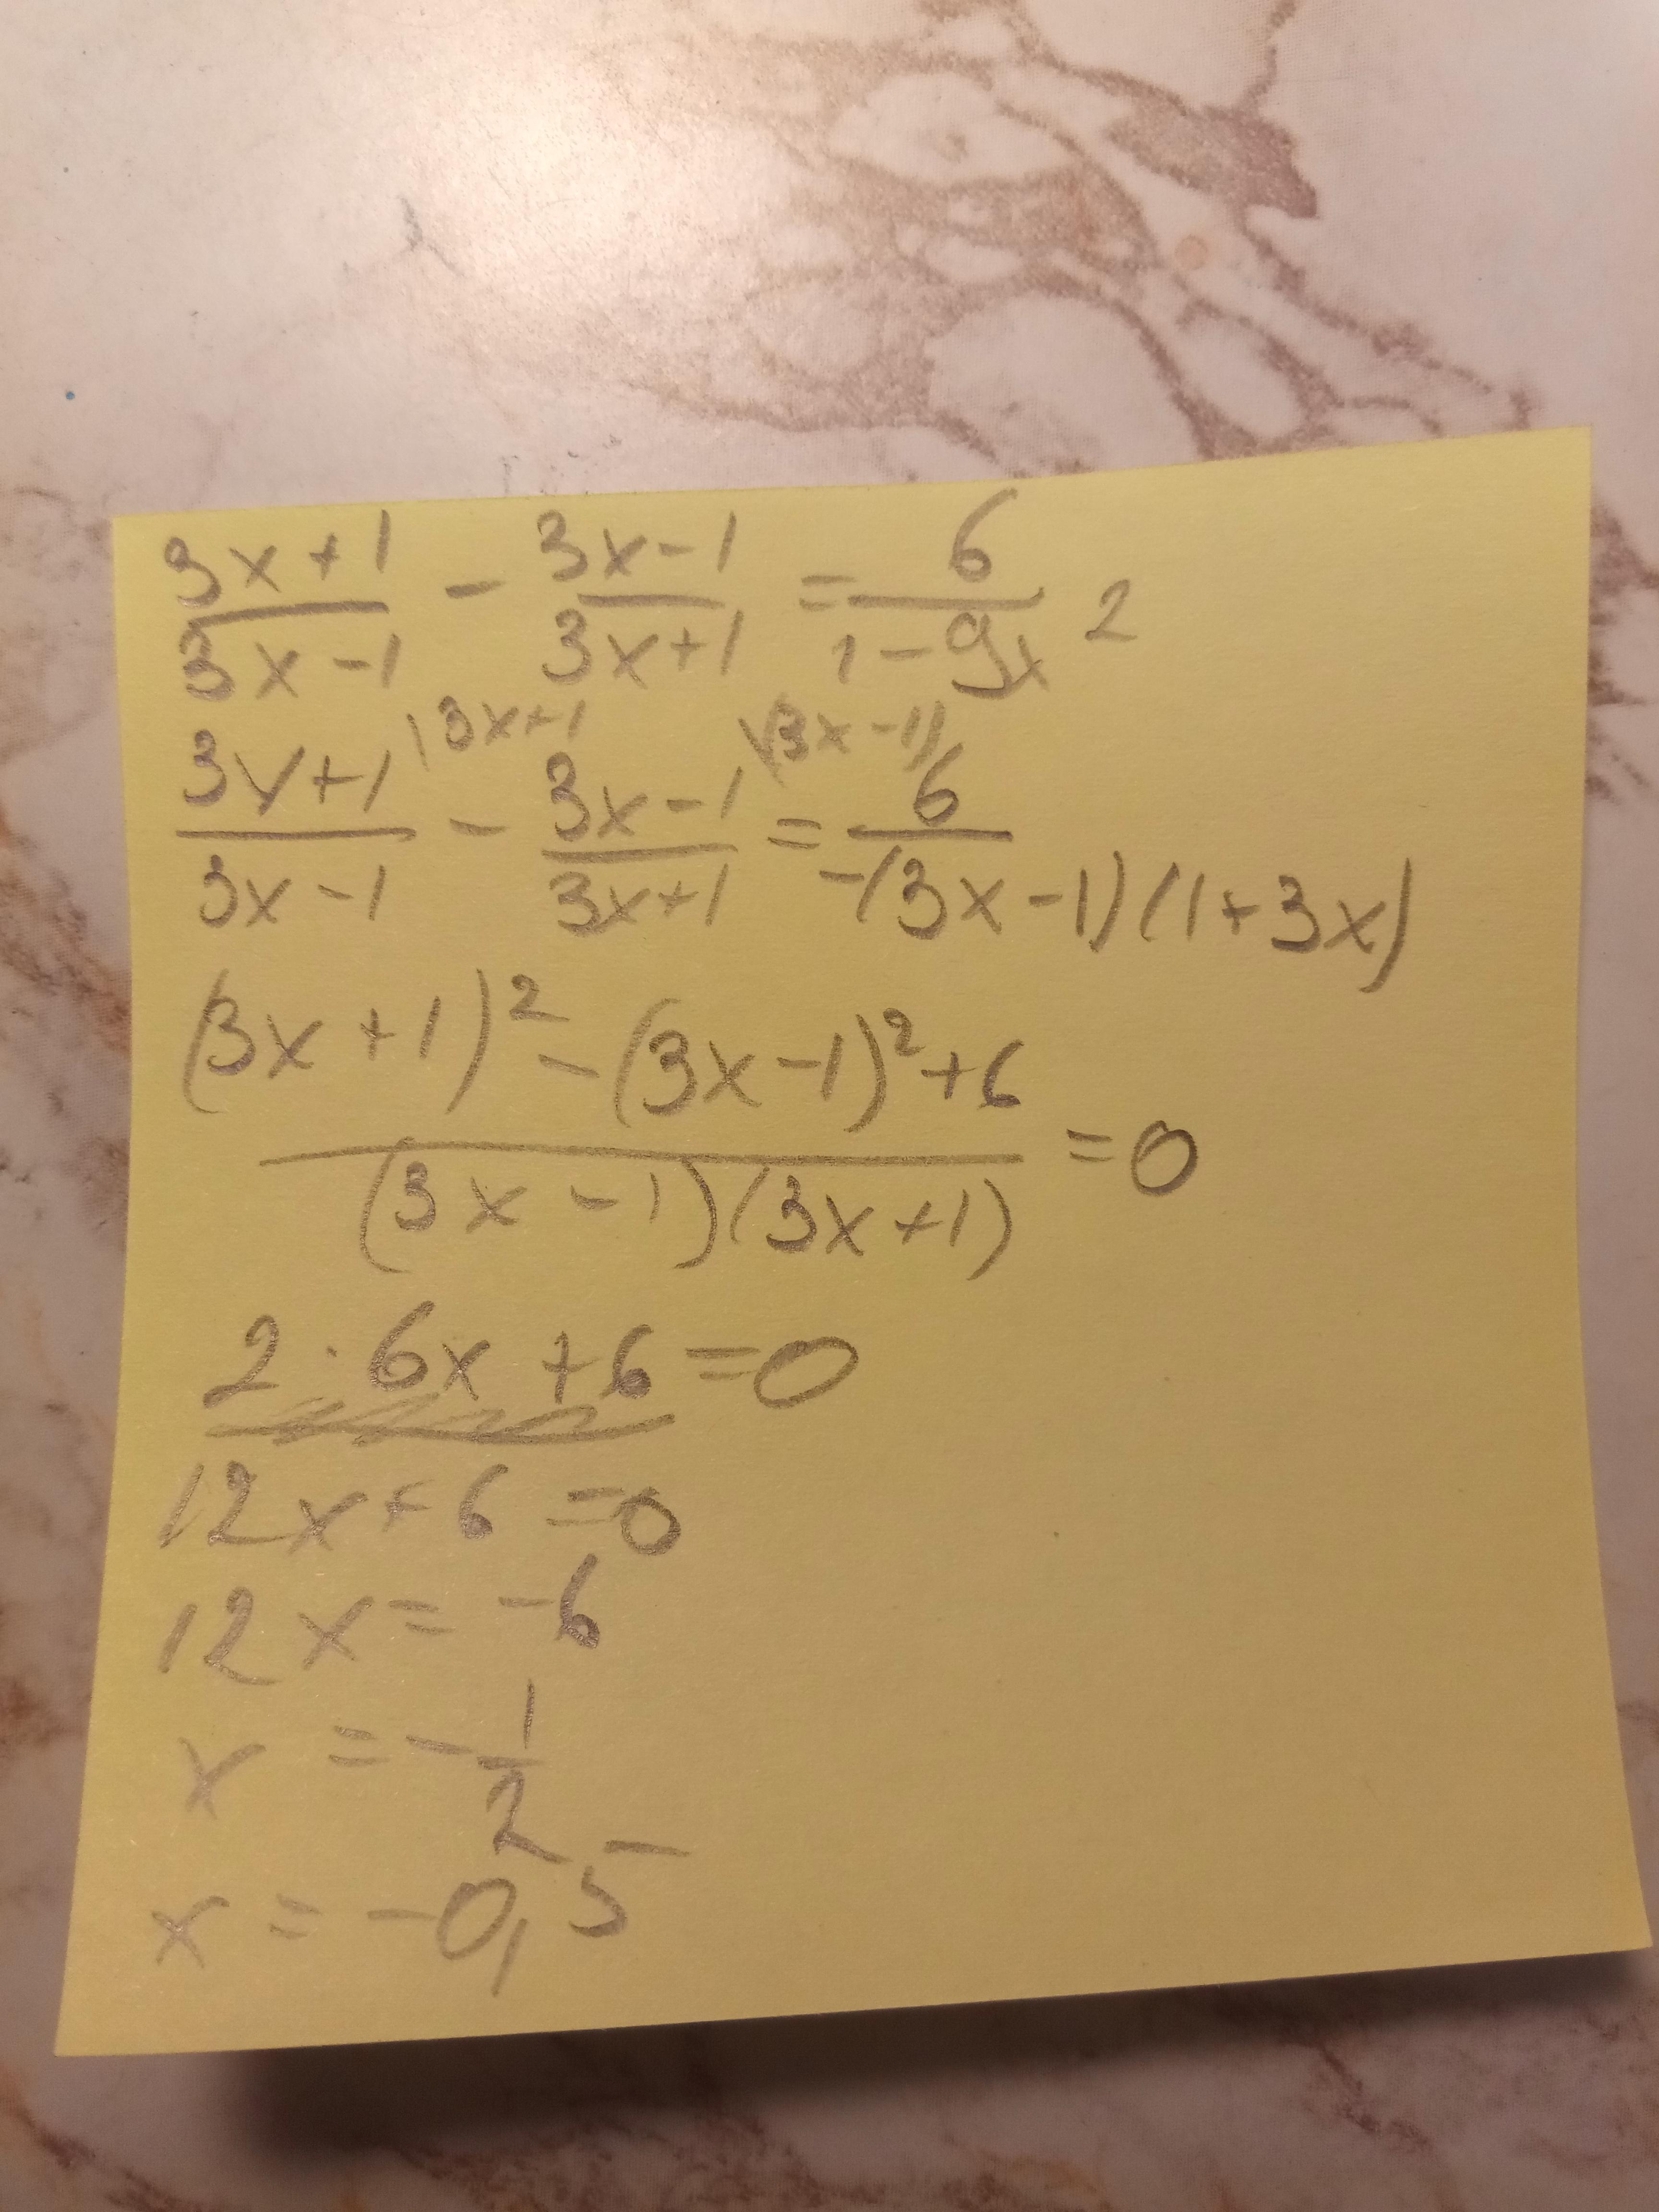 (3x+1)/(3x-1) - (3x-1)/(3x+1) = 6/(1-9x²)
(3x+1)/(3x-1) |3x+1 - (3x-1)/(3x+1) |(3x-1) = 6/(-(3x-1)(1+3x))
((3x+1)² - (3x-1)² + 6)/((3x-1)(3x+1)) = 0
2·6x+6=0
12x+6=0
12x=-6
x=-1/2
x=-0,5